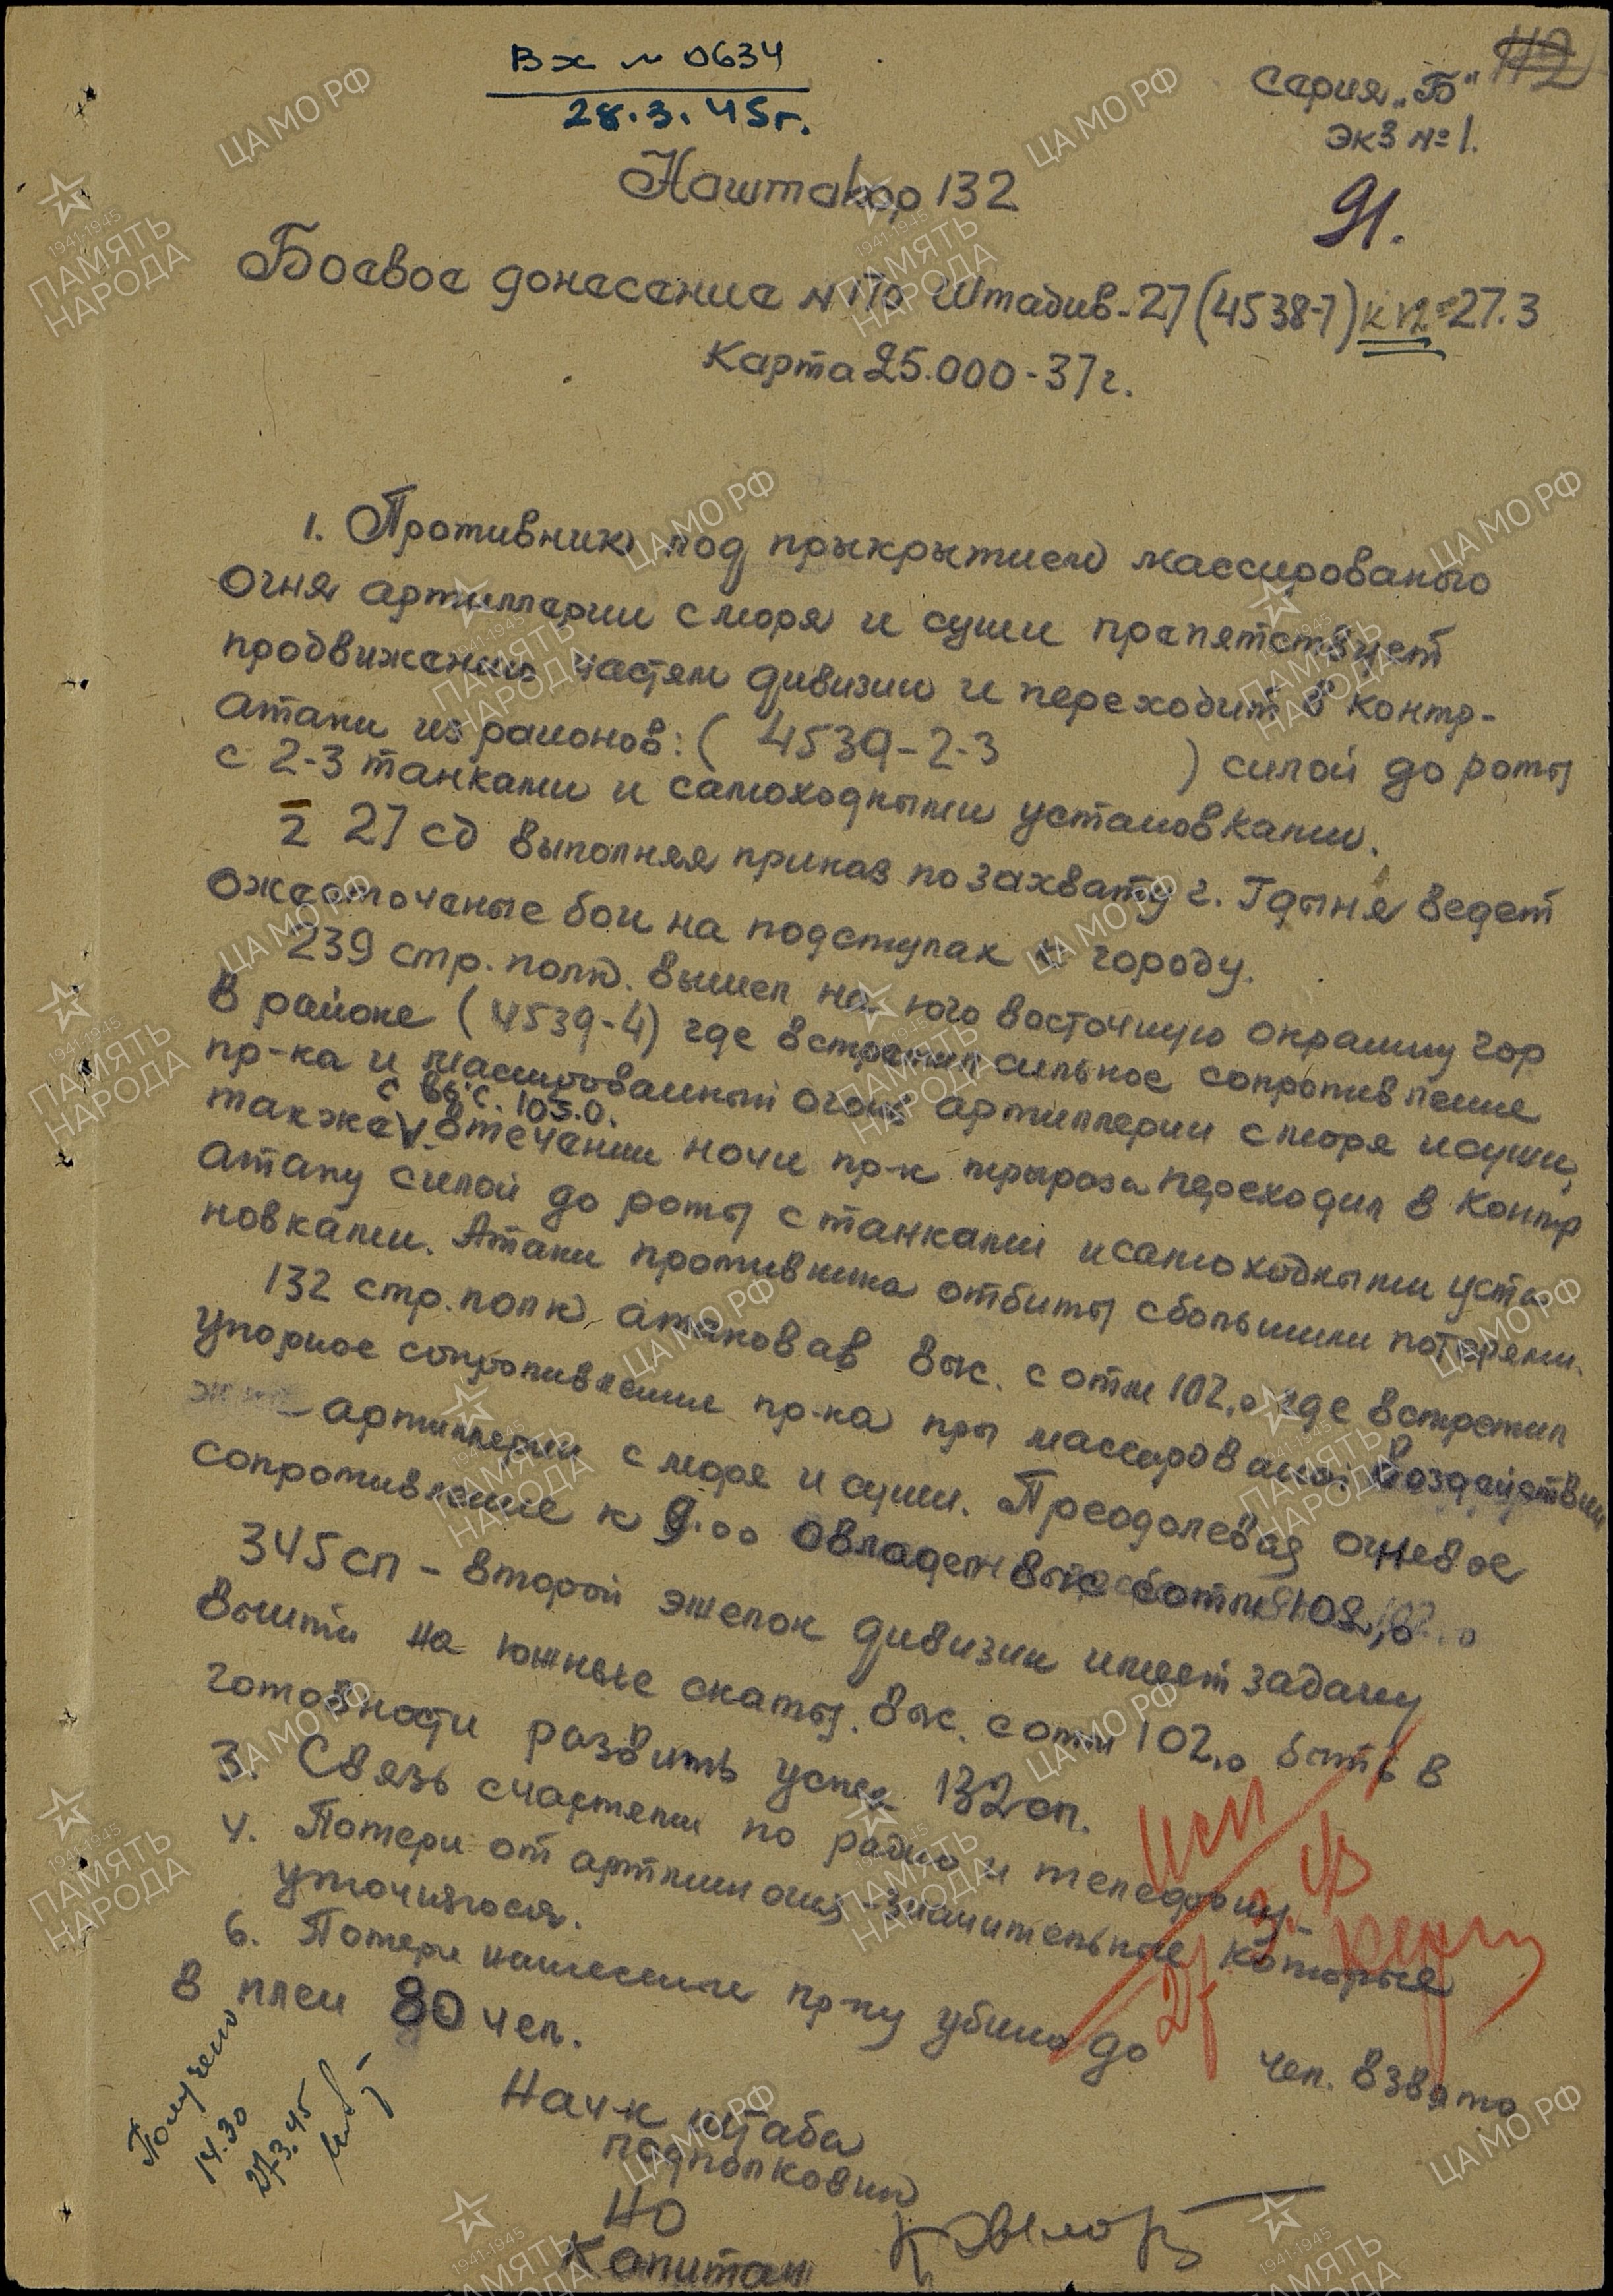 Вх № 0634
28.3.45г.
Серия „Б"
экз № 1.
91.
Наштакор 132
Боевое донесение № 170 Штадив-27 (4538-7) к 12 27.3
Карта 25.000-37 г.
1. Противник под прыкрытием массированого
огня артиллерии с моря и суши препятствует
продвижению частям дивизии и переходит в контр-
атаки из районов: ( 4539-2-3 ) силой до роты
с 2-3 танками и самоходными установками.
2 27 сд выполняя приказ по захвату г. Гдыня ведет
ожесточеные бои на подступах к городу.
239 стр. полк. вышел на юго восточную окраину гор
в районе (4539-4) где встретил сильное сопротивление
пр-ка и массированный огонь артиллерии с моря и суши,
с выс. 105.0.
также V в течении ночи пр-к тры раза переходил в контр
атаку силой до роты с танками и самоходными уста
новками. Атаки противника отбиты с большими потерями.
132 стр. полк атаковав выс. с отм 102,0 где встретил
упорное сопротивление пр-ка пры массированой воздействии
артиллерии с моря и суши. Преодолевая огневое
сопротивление к 9.00 овладел выс с отм 102,0
345 сп - второй эшелон дивизии имеет задачу
выйти на южные скаты. выс. с отм 102,0 быть в
готовности развить успех 132 сп.
3. Связь с частями по радио и телефону
4. Потери от артмин огня - значительные которые
уточняются.
6. Потери нанесеные пр-ку убито до чел. взято
в плен 80 чел.
Нач-к штаба
подполковник
НО
Капитан
Получено
14.30
27.3.45
ЦА МО РФ
1941-1945
ПАМЯТЬ
НАРОДА